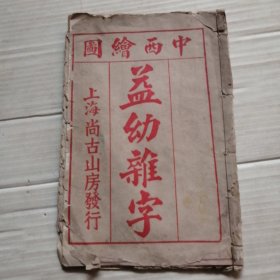 中西繪圖
益幼雜字
上海尚古山房發行